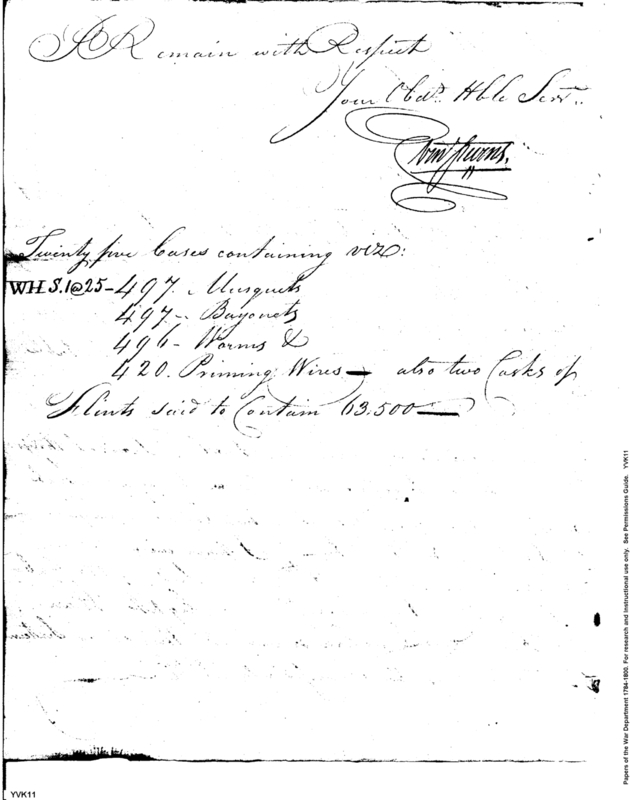 I Remain with Respect
Your Obdt. Hble Servt..
Twenty five Cases containing viz:
WH S.1@25-497. Musquets
497- Bayonets
496- Worms &
420. Priming Wires — also two Casks of
Flints said to Contain 63.500—
YVK11
Papers of the War Department 1784-1800. For research and instructional use only. See Permissions Guide. YVK11